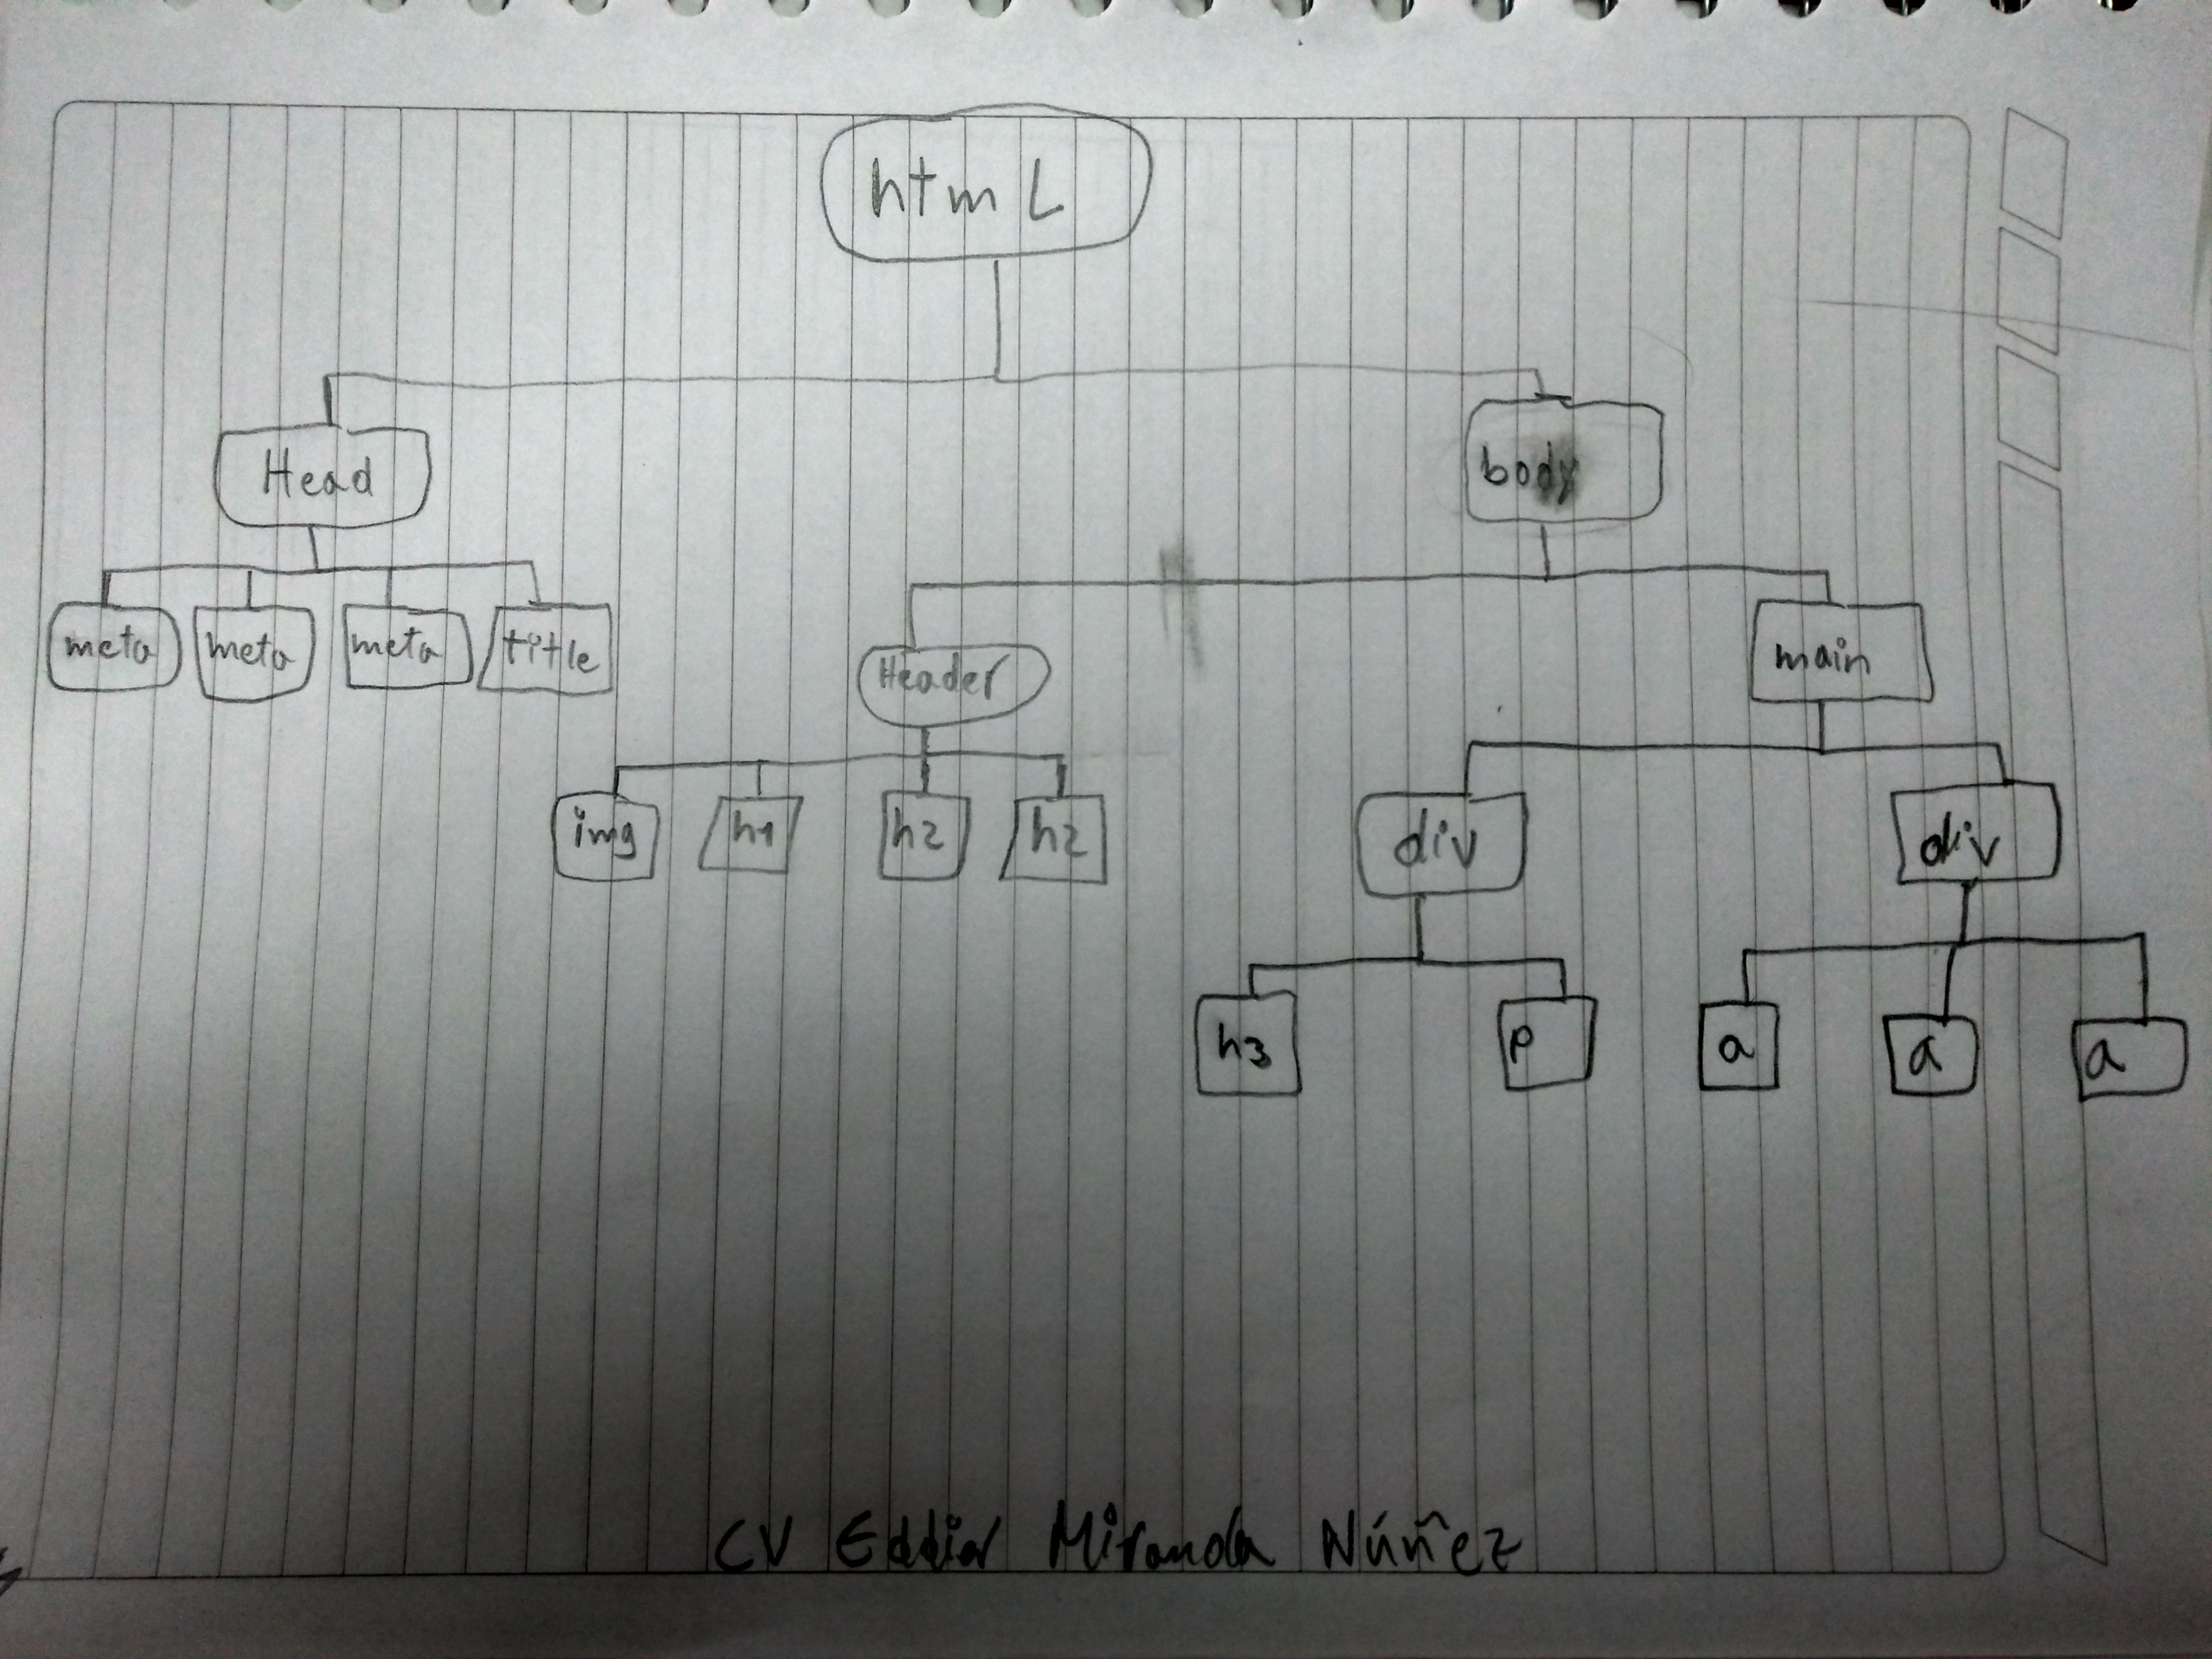 html
Head
body
meta meta meta title
Header
main
img h1 h2 h2
div div
h3 p a a a
CV Eddier Miranda Núñez